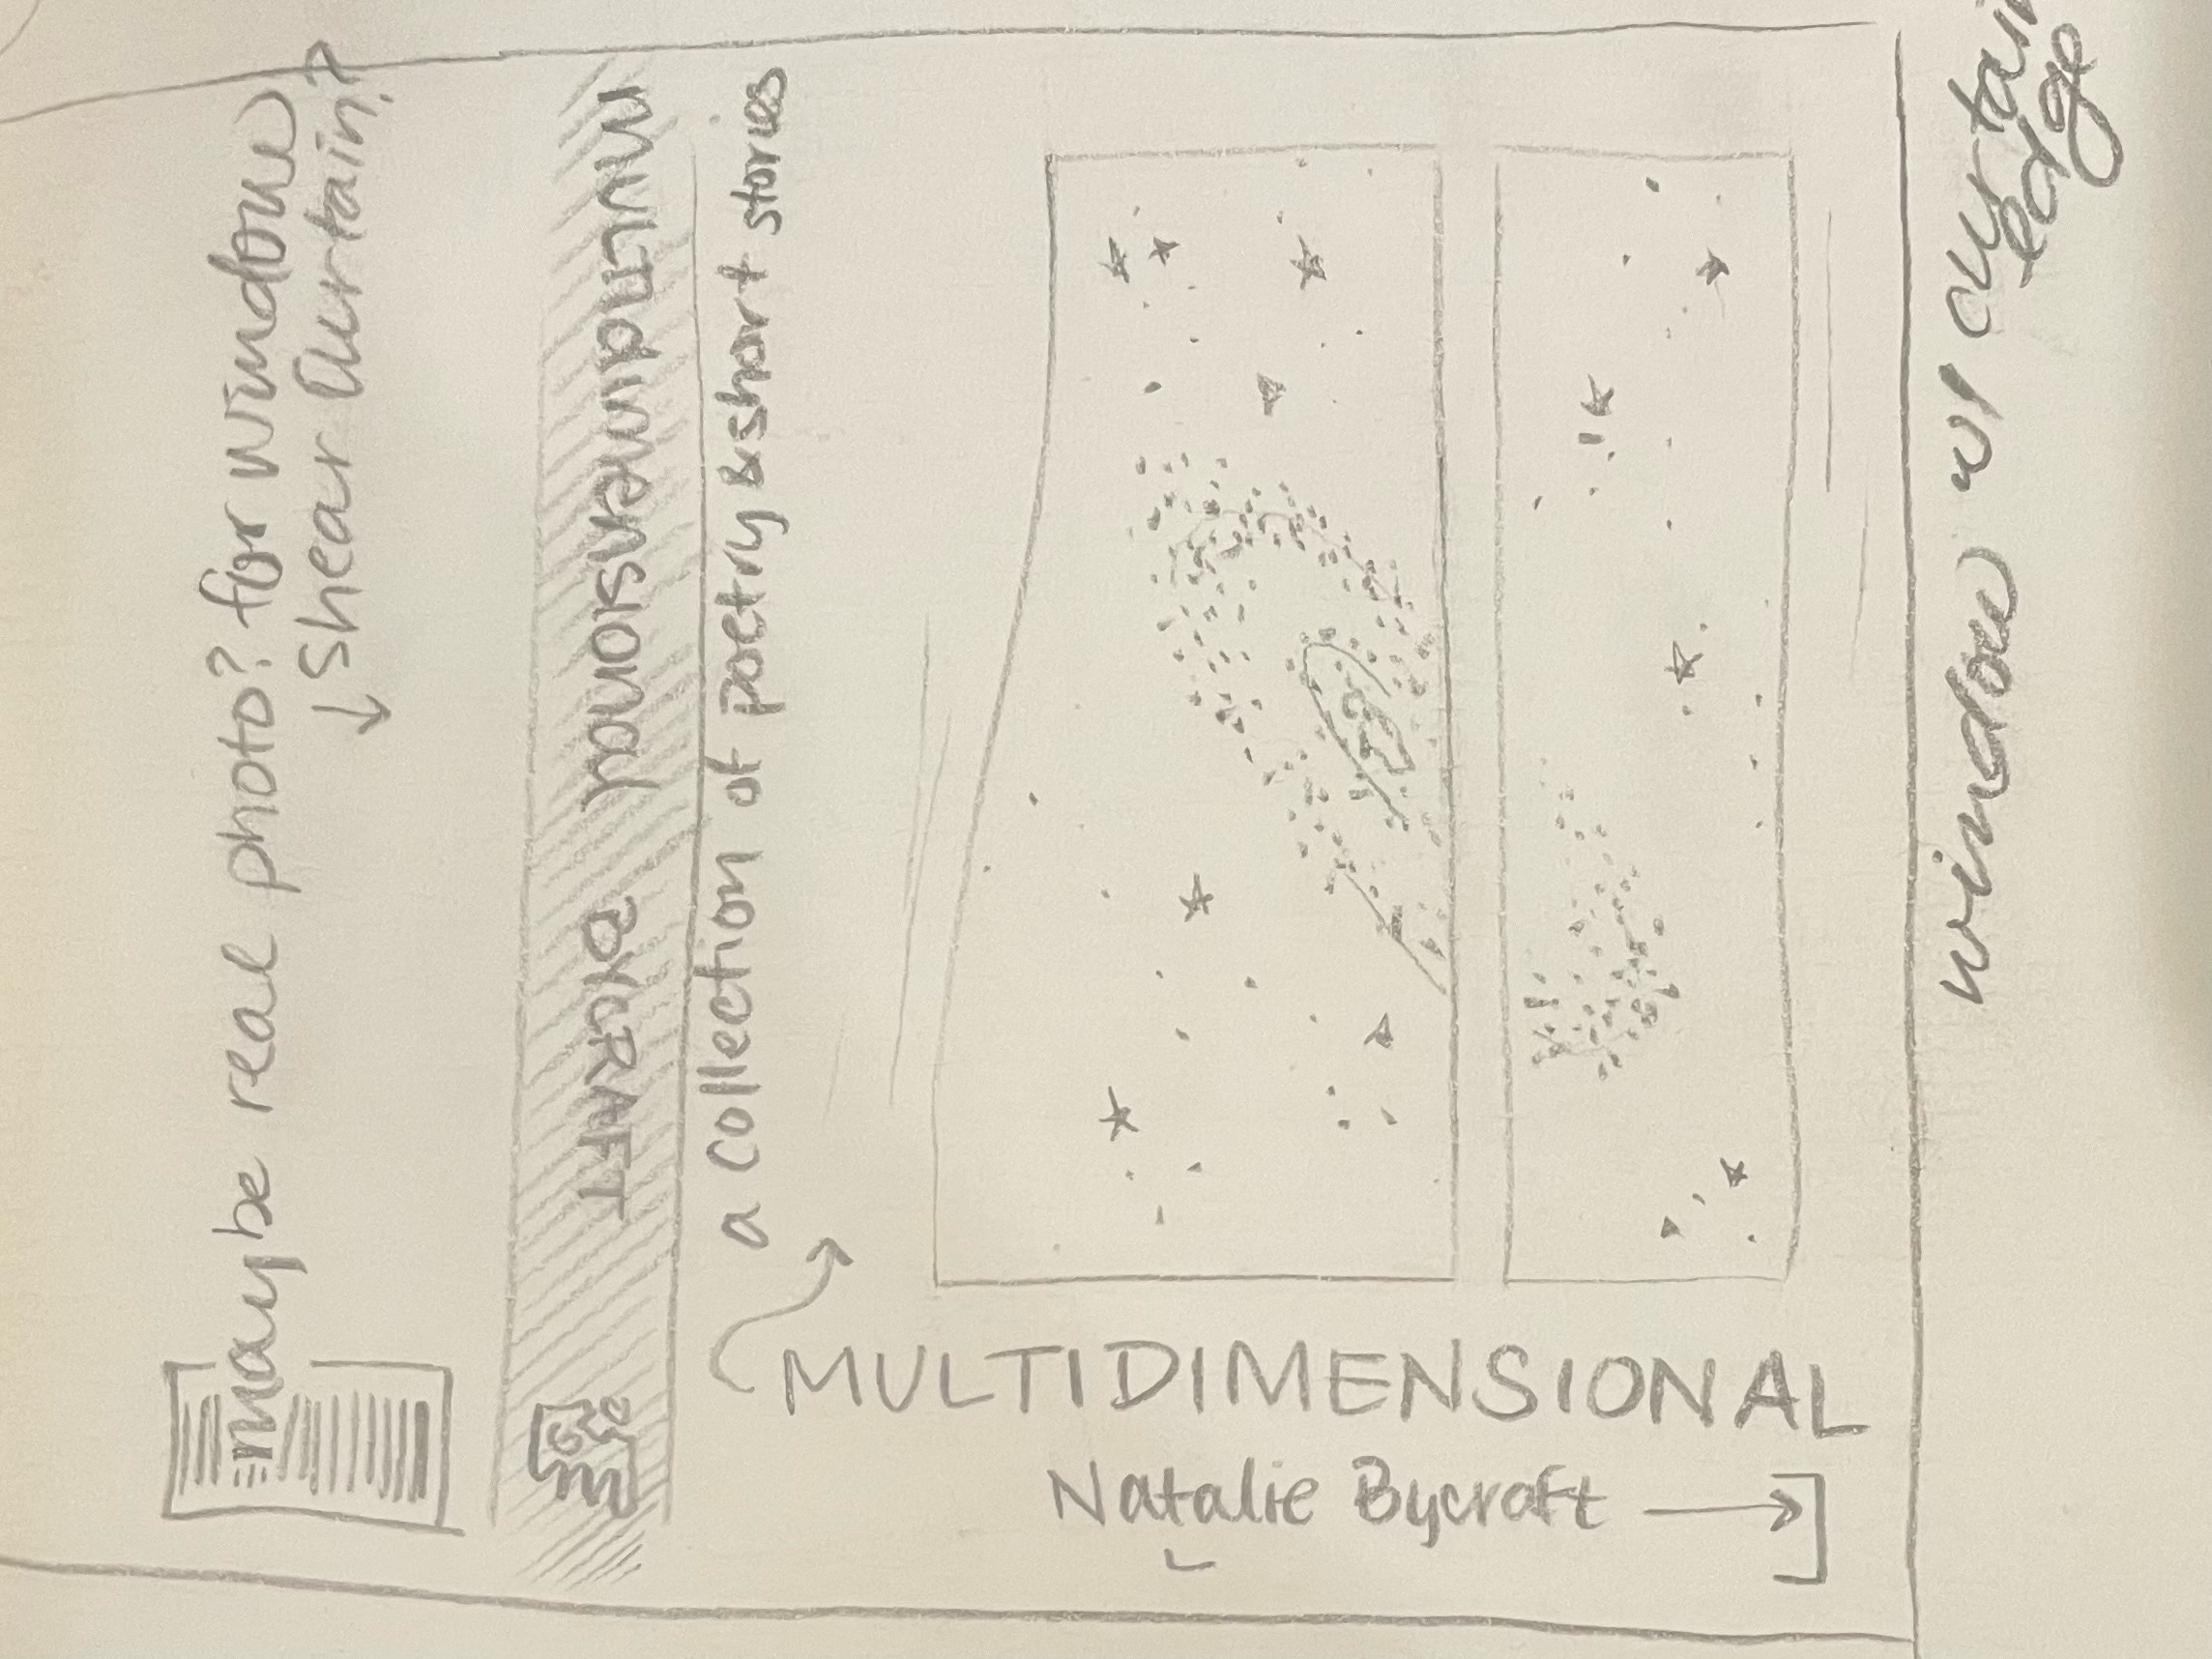 maybe real photo? for window
↓ shear curtain?
MULTIdimensional BYCRAFT
a collection of poetry & short stories
MULTIDIMENSIONAL
Natalie Bycroft →
window w/ curtain
edge